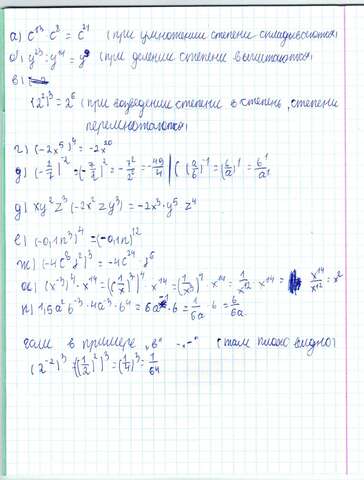 а) c¹³ · c⁸ = c²¹ (при умножении степени складываются)
б) y²³ : y¹⁴ = y⁹ (при делении степени вычитаются)
в)
(2²)³ = 2⁶ (при возведении степени в степень, степени
перемножаются)
г) (-2x⁵)⁴ = -2x²⁰
д) (-2/7)⁻² = (-7/2)² = -7²/2² = -49/4 | (
д) xy²z³ (-2x²zy³) = -2x³·y⁵ z⁴
е) (-0,1n³)⁴ = (-0,1n)¹²
ж)
(x⁻³)⁴ · x¹⁴ = ((1/x)³)⁴ · x¹⁴ = (1/x³)⁴ · x¹⁴ = 1/x¹² · x¹⁴ = x¹⁴/x¹² = x²
1,5a²b⁻³ · 4a⁻³ · b⁴ = 6a⁻¹ · b = 1/6a · b = b/6a
если в примере „в“ (там плохо видно)
(2⁻²)³ = ((1/2)²)³ = (1/4)³ = 1/64